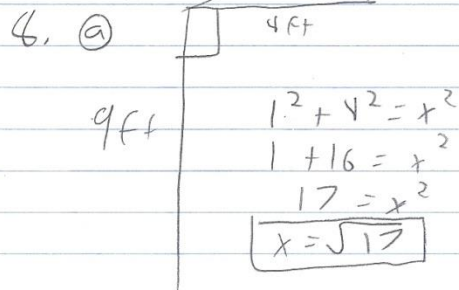 8. ⓐ 4 ft
9 ft
1² + 4² = x²
1 + 16 = x²
17 = x²
x = √17